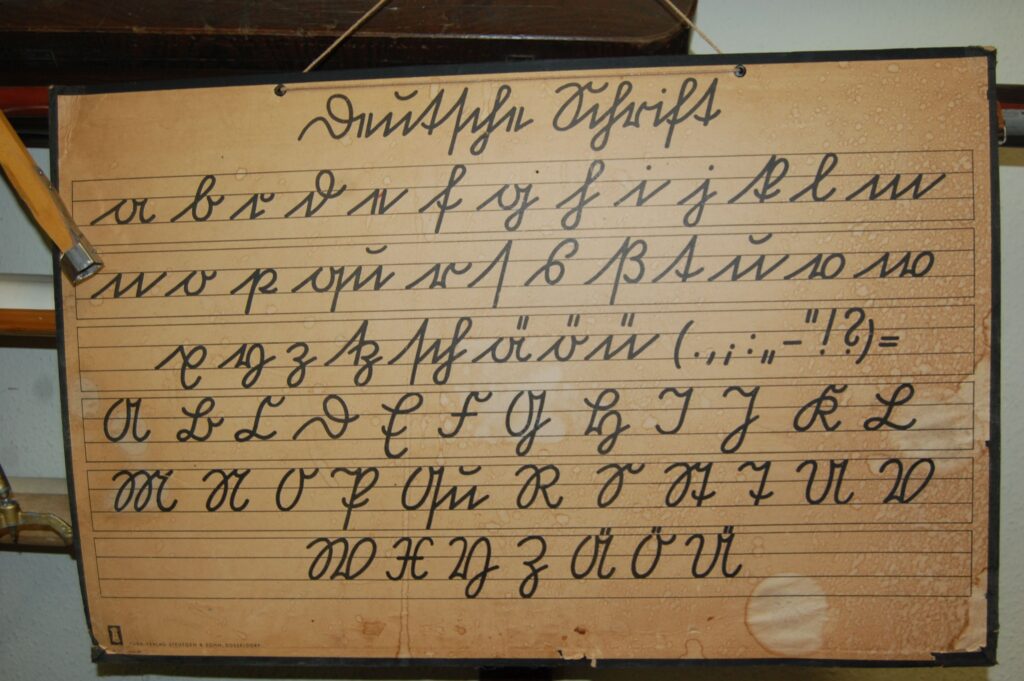 Deutſche Schrift
a b c d e f g h i j k l m
n o p qu r ſ s ß t u v w
x y z tz ſch ä ö ü (.,;:„-"!?)=
A B C D E F G H I J K L
M N O P Qu R S St T U V
W X Y Z Ä Ö Ü
VERLAG & SOHN, DÜSSELDORF